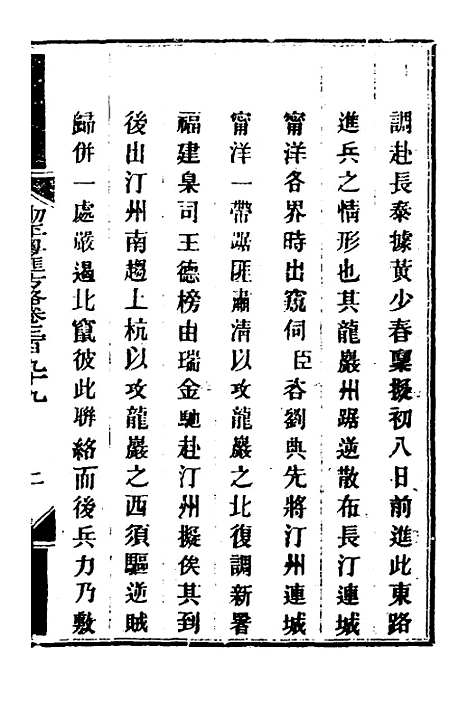 調赴長泰據黃少春稟擬初八日前進此東路
進兵之情形也其龍巖州踞逆散布長汀連城
甯洋各界時出窺伺臣咨劉典先將汀州連城
甯洋一帶踞匪肅清以攻龍巖之北復調新署
福建臬司王德榜由瑞金馳赴汀州擬俟其到
後出汀州南趨上杭以攻龍巖之西須驅逆賊
歸併一處嚴遏北竄彼此聯絡而後兵力乃敷
方略卷三百九十九
二